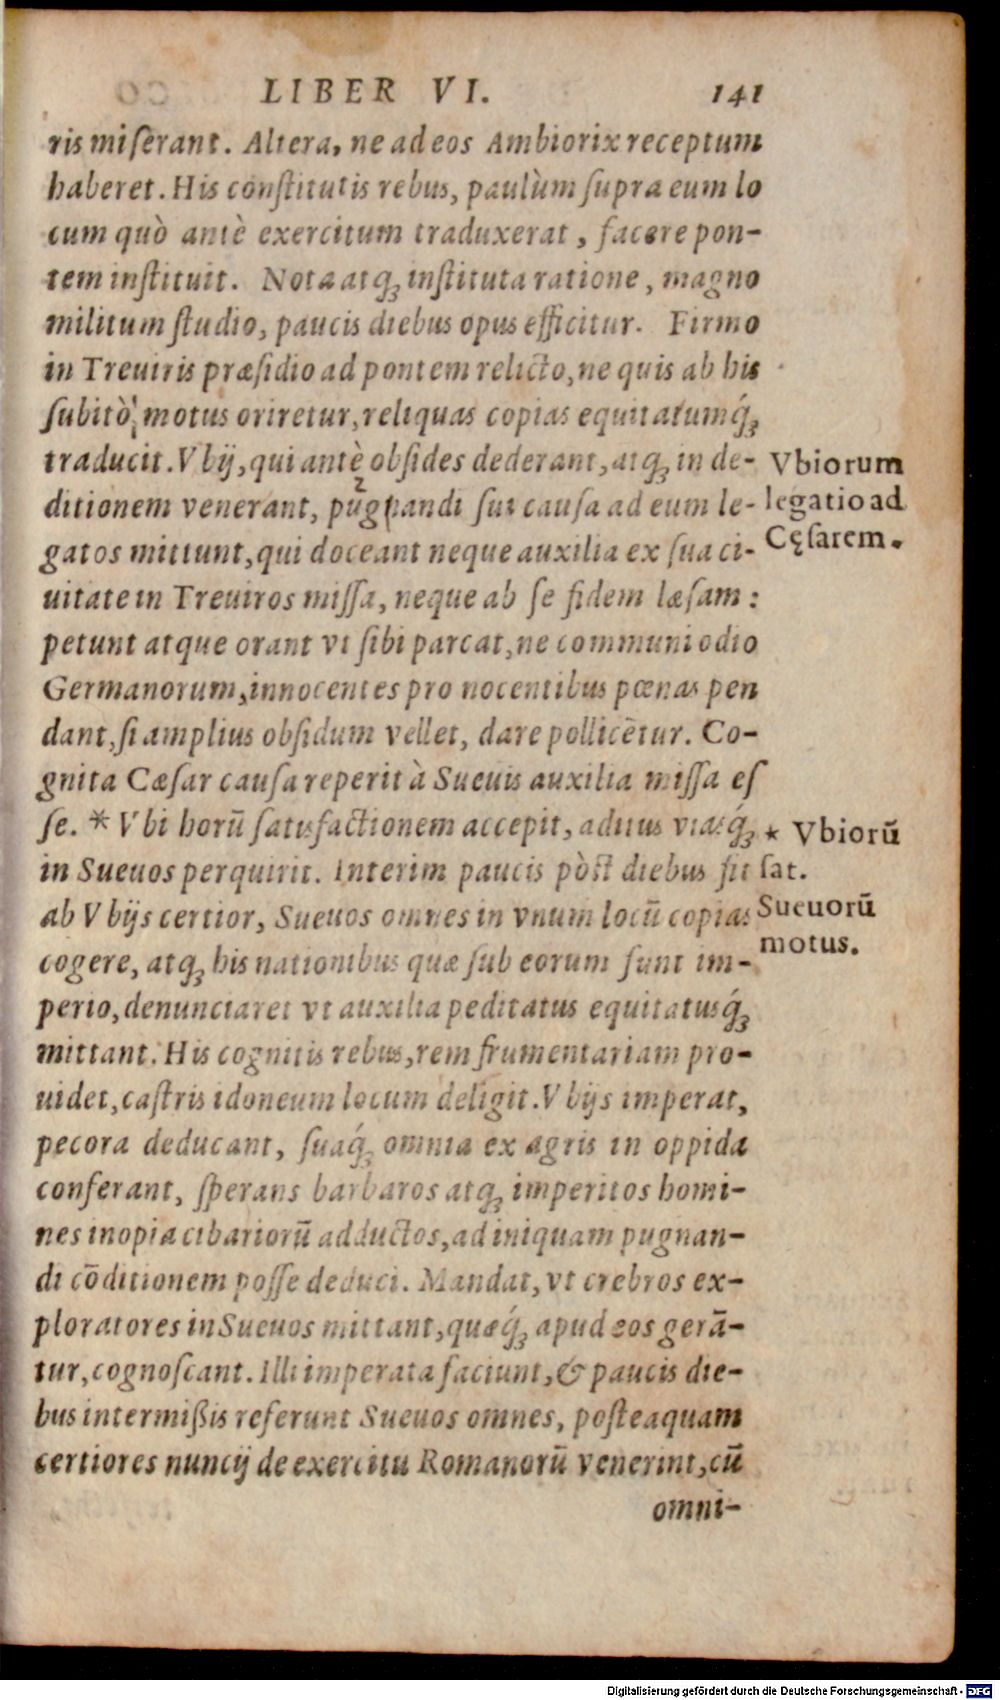 LIBER VI. 141
ris miserant. Altera, ne ad eos Ambiorix receptum
haberet. His constitutis rebus, paulùm supra eum lo
cum quò antè exercitum traduxerat, facere pon-
tem instituit. Nota atq; instituta ratione, magno
militum studio, paucis diebus opus efficitur. Firmo
in Treuiris præsidio ad pontem relicto, ne quis ab his
subitò motus oriretur, reliquas copias equitatumq́;
traducit. Vbij, qui antè obsides dederant, atq; in de-
ditionem venerant, pugnandi sui causa ad eum le-
gatos mittunt, qui doceant neque auxilia ex sua ci-
uitate in Treuiros missa, neque ab se fidem læsam:
petunt atque orant vt sibi parcat, ne communi odio
Germanorum, innocentes pro nocentibus pœnas pen
dant, si amplius obsidum vellet, dare pollicētur. Co-
gnita Cæsar causa reperit à Sueuis auxilia missa es
se. * Vbi horū satisfactionem accepit, aditus viasq́;
in Sueuos perquirit. Interim paucis pòst diebus fit
ab Vbijs certior, Sueuos omnes in vnum locū copias
cogere, atq; his nationibus quæ sub eorum sunt im-
perio, denunciaret vt auxilia peditatus equitatusq́;
mittant. His cognitis rebus, rem frumentariam pro-
uidet, castris idoneum locum deligit. Vbijs imperat,
pecora deducant, suaq́; omnia ex agris in oppida
conferant, sperans barbaros atq; imperitos homi-
nes inopia cibariorū adductos, ad iniquam pugnan-
di cōditionem posse deduci. Mandat, vt crebros ex-
ploratores in Sueuos mittant, quæq́; apud eos gerā-
tur, cognoscant. Illi imperata faciunt, & paucis die-
bus intermißis referunt Sueuos omnes, posteaquam
certiores nuncij de exercitu Romanorū venerint, cū
omni-
Vbiorum
legatio ad
Cęsarem.
* Vbiorū
sat.
Sueuorū
motus.
Digitalisierung gefördert durch die Deutsche Forschungsgemeinschaft - DFG